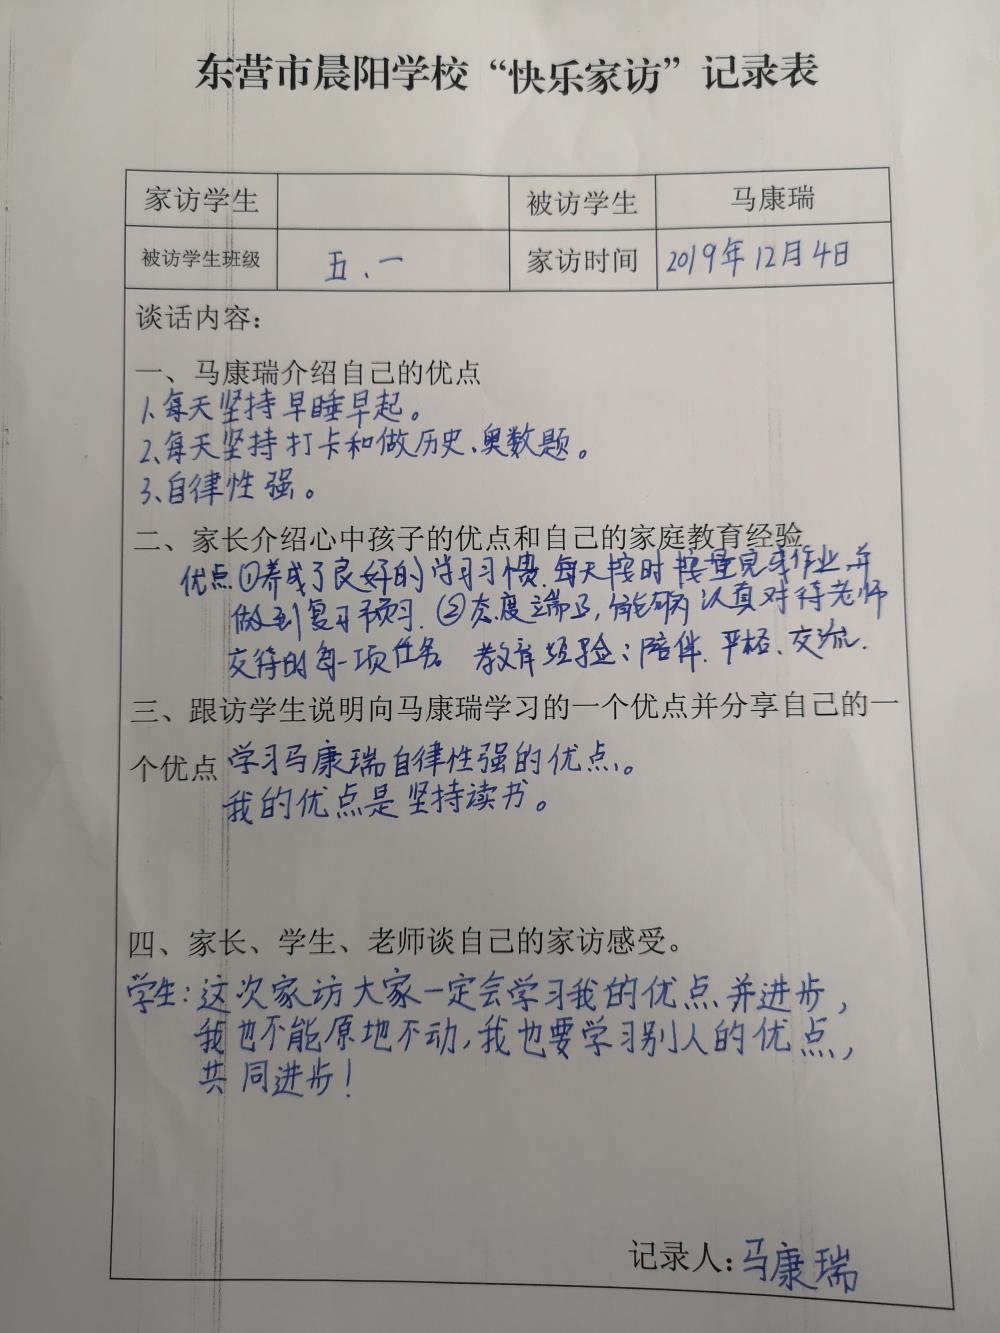 东营市晨阳学校“快乐家访”记录表
家访学生 被访学生 马康瑞
被访学生班级 五、一 家访时间 2019年12月4日
谈话内容：
一、马康瑞介绍自己的优点
1、每天坚持早睡早起。
2、每天坚持打卡和做历史、奥数题。
3、自律性强。
二、家长介绍心中孩子的优点和自己的家庭教育经验
优点①养成了良好的学习习惯.每天按时按量完成作业.并
做到复习预习.②态度端正,能够认真对待老师
交待的每一项任务 教育经验：陪伴.平等、交流.
三、跟访学生说明向马康瑞学习的一个优点并分享自己的一
个优点 学习马康瑞自律性强的优点。
我的优点是坚持读书。
四、家长、学生、老师谈自己的家访感受。
学生：这次家访大家一定会学习我的优点并进步，
我也不能原地不动，我也要学习别人的优点，
共同进步！
记录人：马康瑞